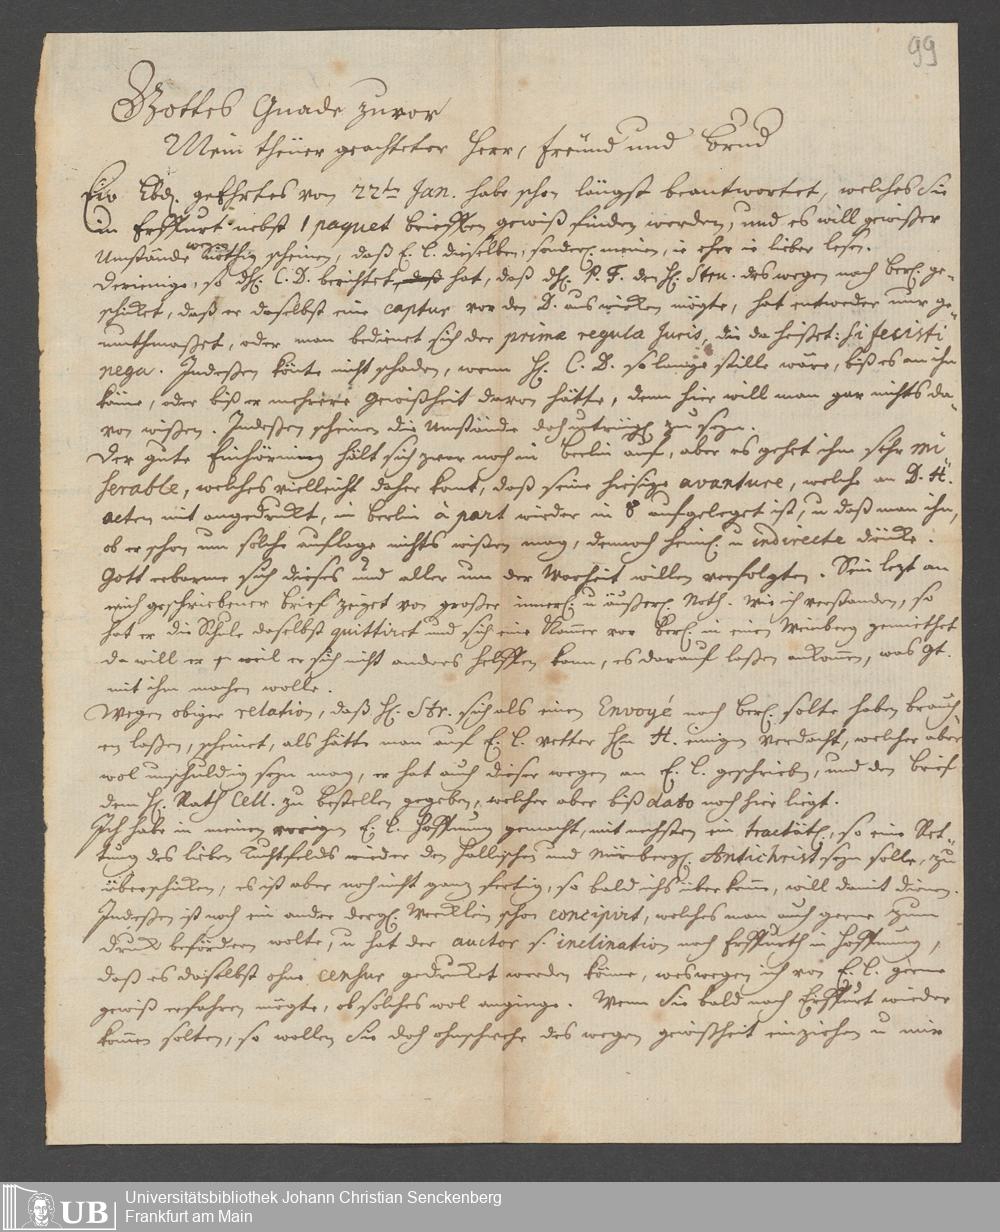 99
Gottes Gnade zuvor
Mein theüer geachteter Herr, freünd und Brud
Ew Lbd. geEhrtes vom 22ten Jan. habe schon längst beantwortet, welches Sie
in Erffurt nebst 1 paquet brieffen gewiß finden werden, und es will gewißer
Umstände wegen nöthig scheinen, daß E. L. dieselben, sonderl. meinen, ie eher ie lieber lesen.
Derienige, so dH. C. D. berichtet hat, daß dH. P. F. den H. Sten. deswegen nach Berl. ge-
schicket, daß er daselbst eine captur vor den D. auswircken mögte, hat entweder nur ge-
muthmaßet, oder man bedienet sich der prima regula Juris, die da heißet: si fecisti
nega. Indeßen könte nicht schaden, wenn H. C. D. so lange stille wäre, biß es an ihn
käme, oder biß er mehrere Gewißheit davon hätte, denn hier will man gar nichts da-
von wißen. Indeßen scheinen die Umstände doch zu seyn.
Der gute Einhörning hält sich zwar noch in Berlin auf, aber es gehet ihm sehr mi-
serable, welches vielleicht daher komt, daß seine hiesige avanture, welche an D. H.
acten mit angedruckt, in Berlin à part wieder in 8 aufgeleget ist, u daß man ihn,
ob er schon um solche auflage nichts wißen mag, dennoch heiml. u indirecte drücke.
Gott erbarme sich dieses und aller um der Warheit willen verfolgten. Sein lezt an
mich geschriebener brief zeiget von großer innerl. u äußerl. Noth. Wie ich verstanden, so
hat er die Schule daselbst quittiret und sich eine Kammer vor Berl. in einen Weinberg gemiethet
da will er weil er sich nicht anders helffen kann, es darauf laßen ankomen, was Gt.
mit ihm machen wolle.
Wegen obiger relation, daß H. Str. sich als einen Envoyé nach Berl. solte haben brauch-
en laßen, scheinet, als hätte man auf E. L. vetter Hn H. einigen verdacht, welcher aber
wol unschuldig seyn mag, er hat auch dieser wegen an E. L. geschrieben, und den brief
dem H. Rath Cell. zu bestellen gegeben, welcher aber biß dato noch hier liegt.
Ich habe in meinem vorigen E. L. Hoffnung gemacht, mit nechsten ein tractätl. so eine Ret-
tung des lieben Tuchtfelds wieder den Hallischen und Nürnberg. Antichrist seyn solle, zu
überschicken, es ist aber noch nicht ganz fertig, so bald ichs überkomme, will damit dienen.
Indeßen ist noch ein ander dergl. Wercklein schon concipirt, welches man auch gerne zum
druck befördern wolte, u hat der auctor s. inclination nach Erffurth in Hoffnung,
daß es daselbst ohne censur gedrucket werden könne, weswegen ich von E. L. gerne
gewiß erfahren mögte, ob solches wol anginge. Wenn Sie bald nach Erffurt wieder
kommen solten, so wollen Sie doch ohnschwehr deswegen gewißheit einziehen u mir
UB
Universitätsbibliothek Johann Christian Senckenberg
Frankfurt am Main